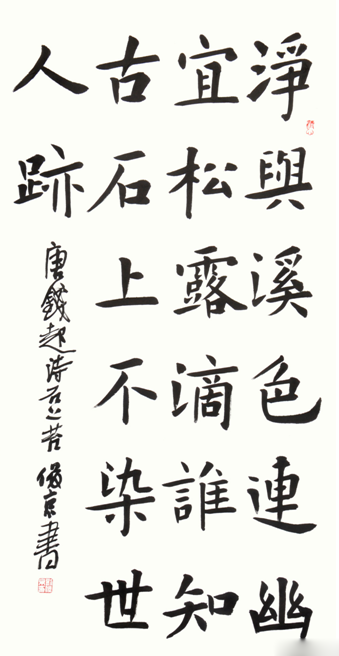 淨與溪色連幽
宜松露滴誰知
古石上不染世
人跡
唐錢起詩石上苔 俊京書